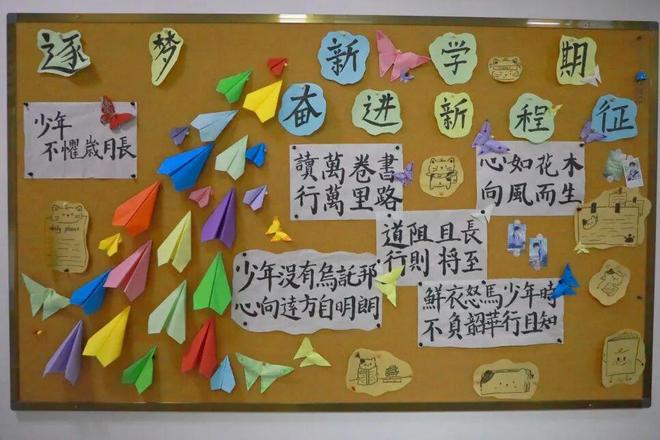 逐梦新学期
奋进新程征
少年
不懼歲月長
讀萬卷書
行萬里路
心如花木
向風而生
道阻且長
行則將至
少年沒有烏託邦
心向遠方自明朗
鮮衣怒馬少年時
不負韶華行且知